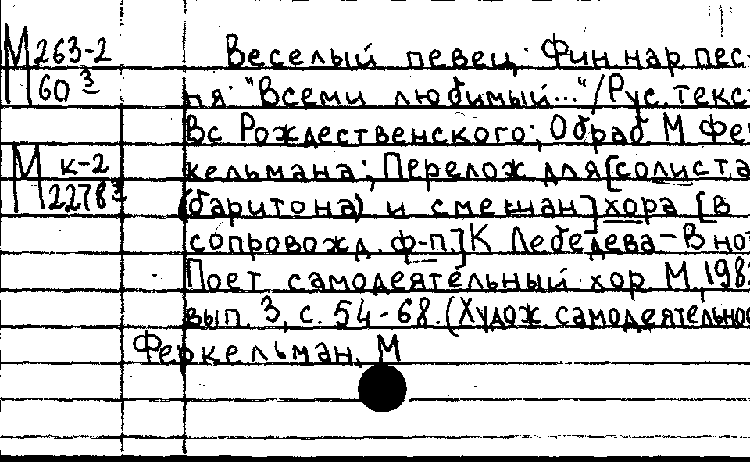 М 263-2 Веселый певец: Фин нар пес-
60 з ня: "Всеми любимый..."/Рус. текс
Вс Рождественского; Обраб М Фе
М к-2 кельмана; Перелож для [солиста
12278 з (баритона) и смешан] хора [в
сопровожд. ф-п.] К Лебедева - В но
Поет самодеятельный хор М, 198
вып. 3, с. 54-68. (Худож самодеятельнос
Феркельман, М